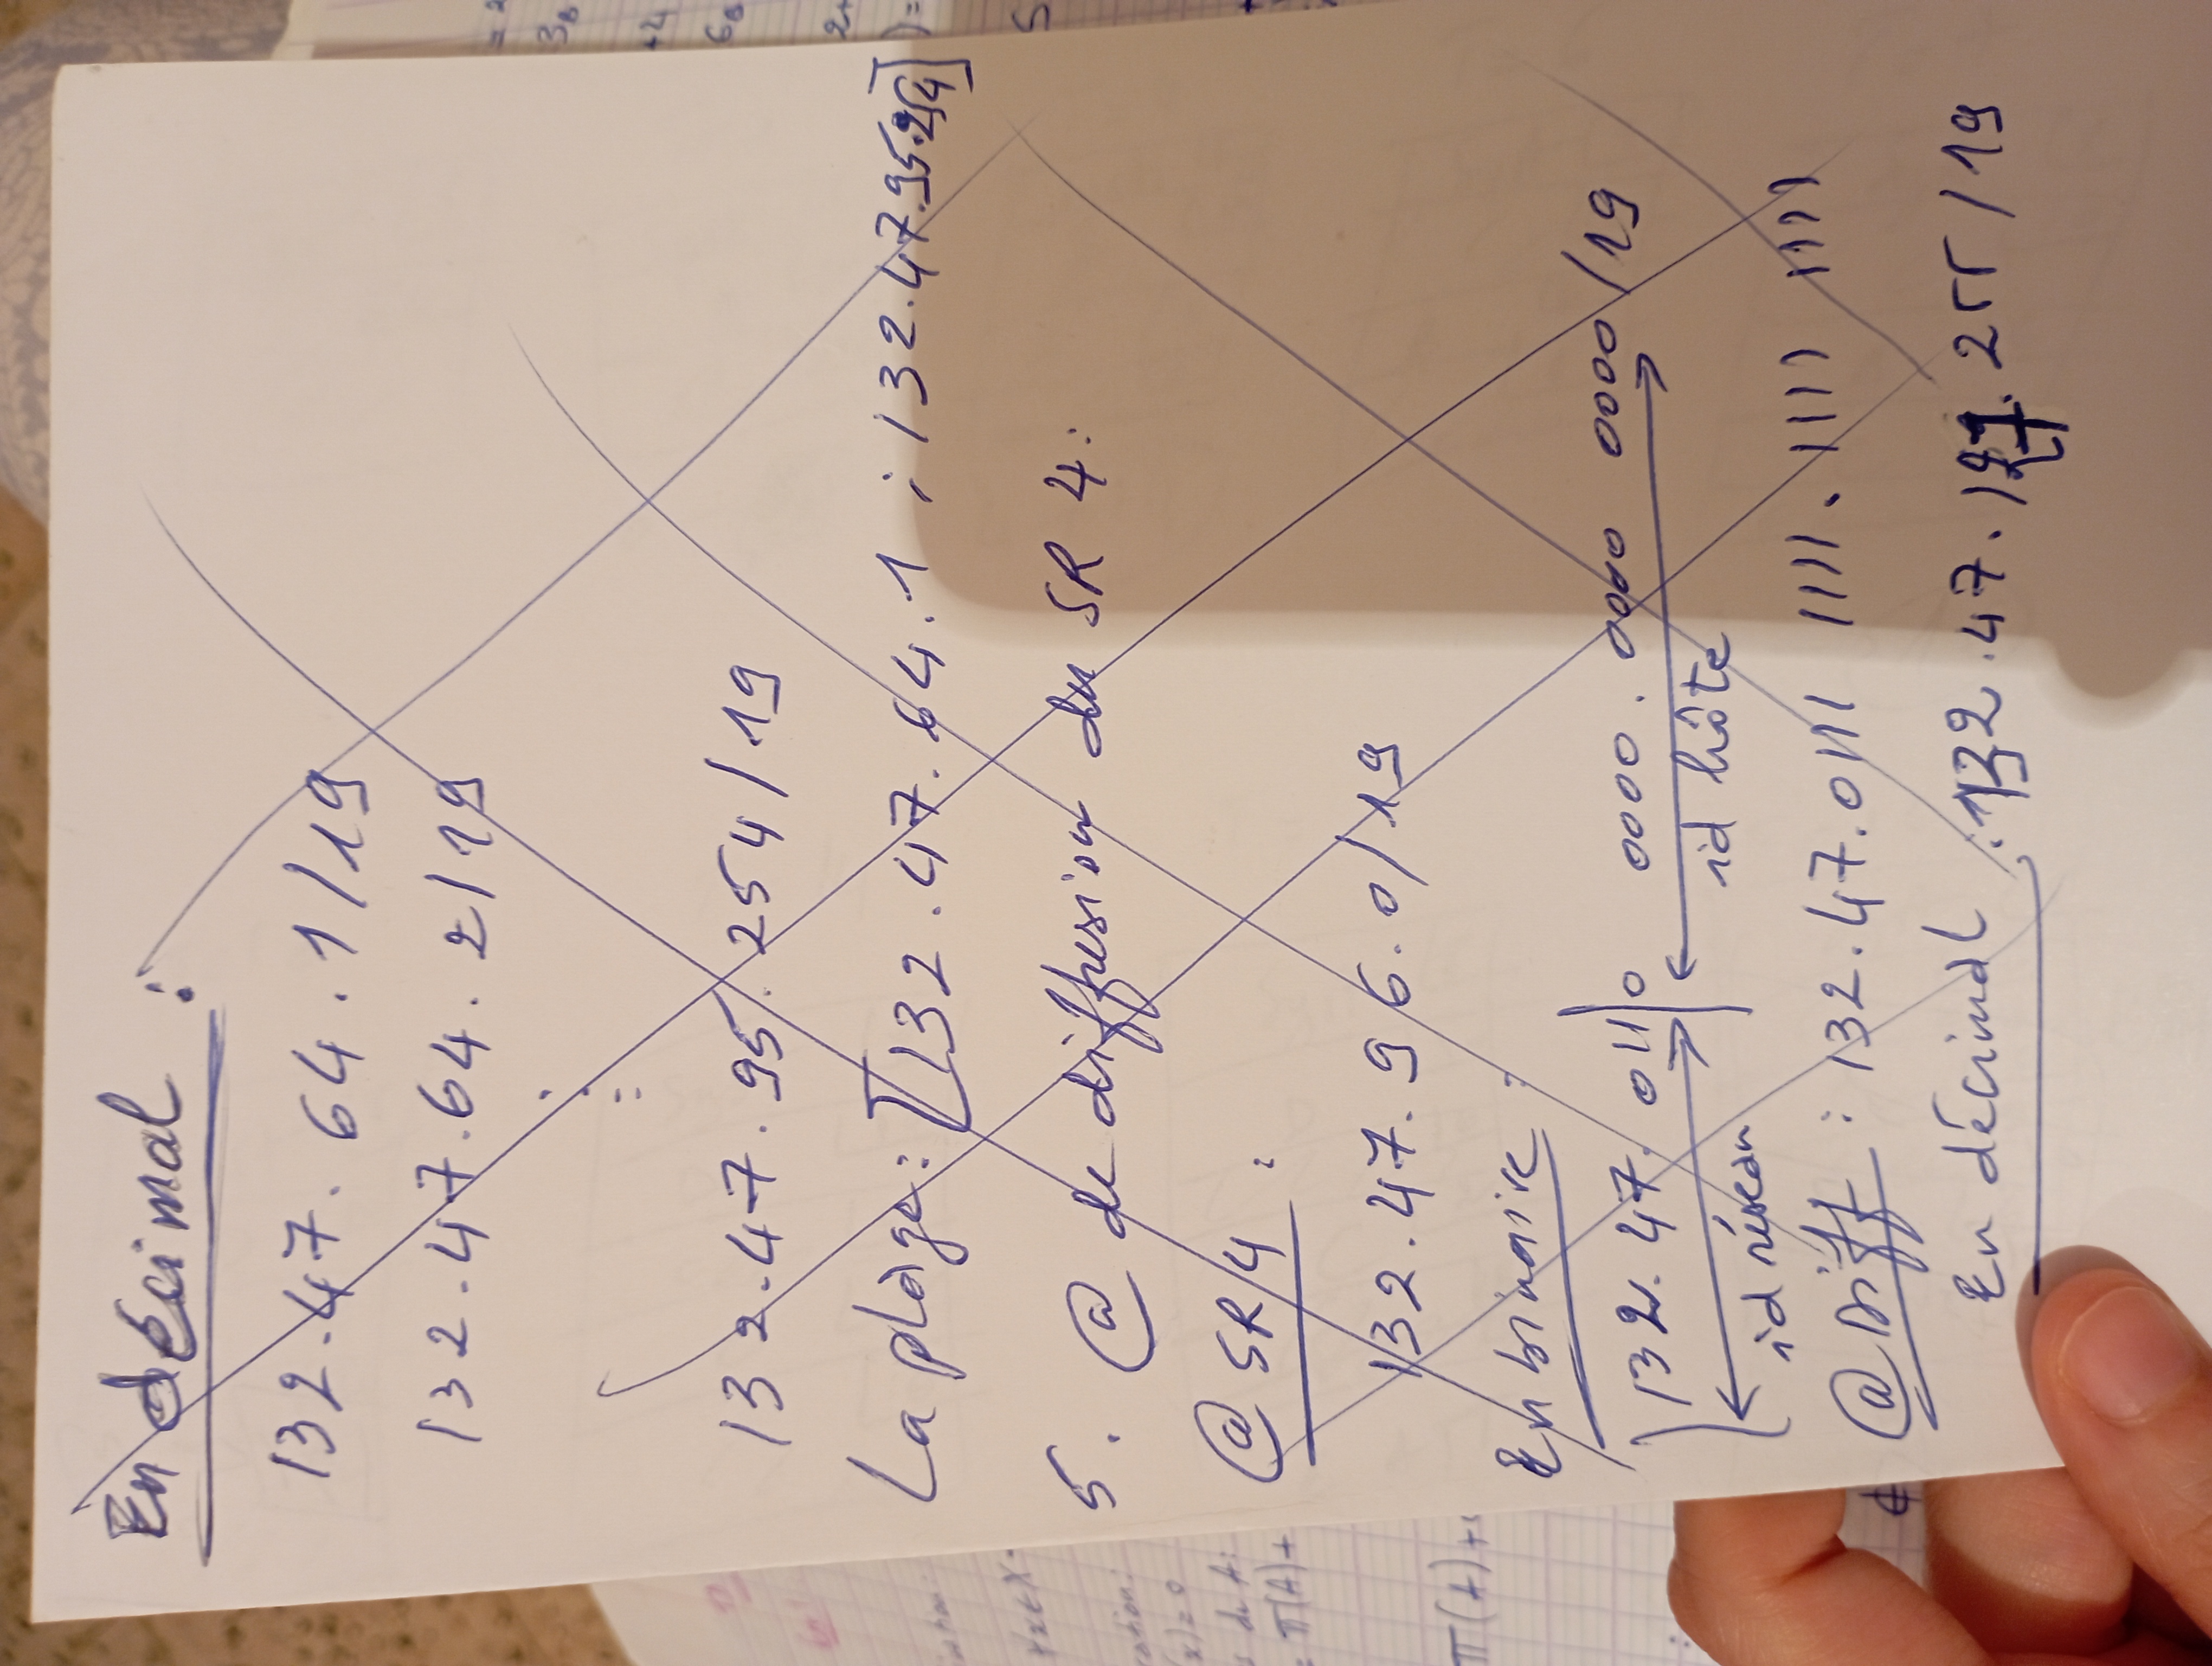 En décimal :
132.47.64.1/19
132.47.64.2/19
:
=
132.47.95.254/19
La plage : [132.47.64.1 ; 132.47.95.254]
5. @ de diffusion du SR 4 :
@ SR 4 :
132.47.96.0/19
En binaire :
132.47.011|0 0000.0000 0000/19
id réseau id hôte
@ Diff : 132.47.0111 1111.1111 1111
En décimal : 132.47.127.255/19